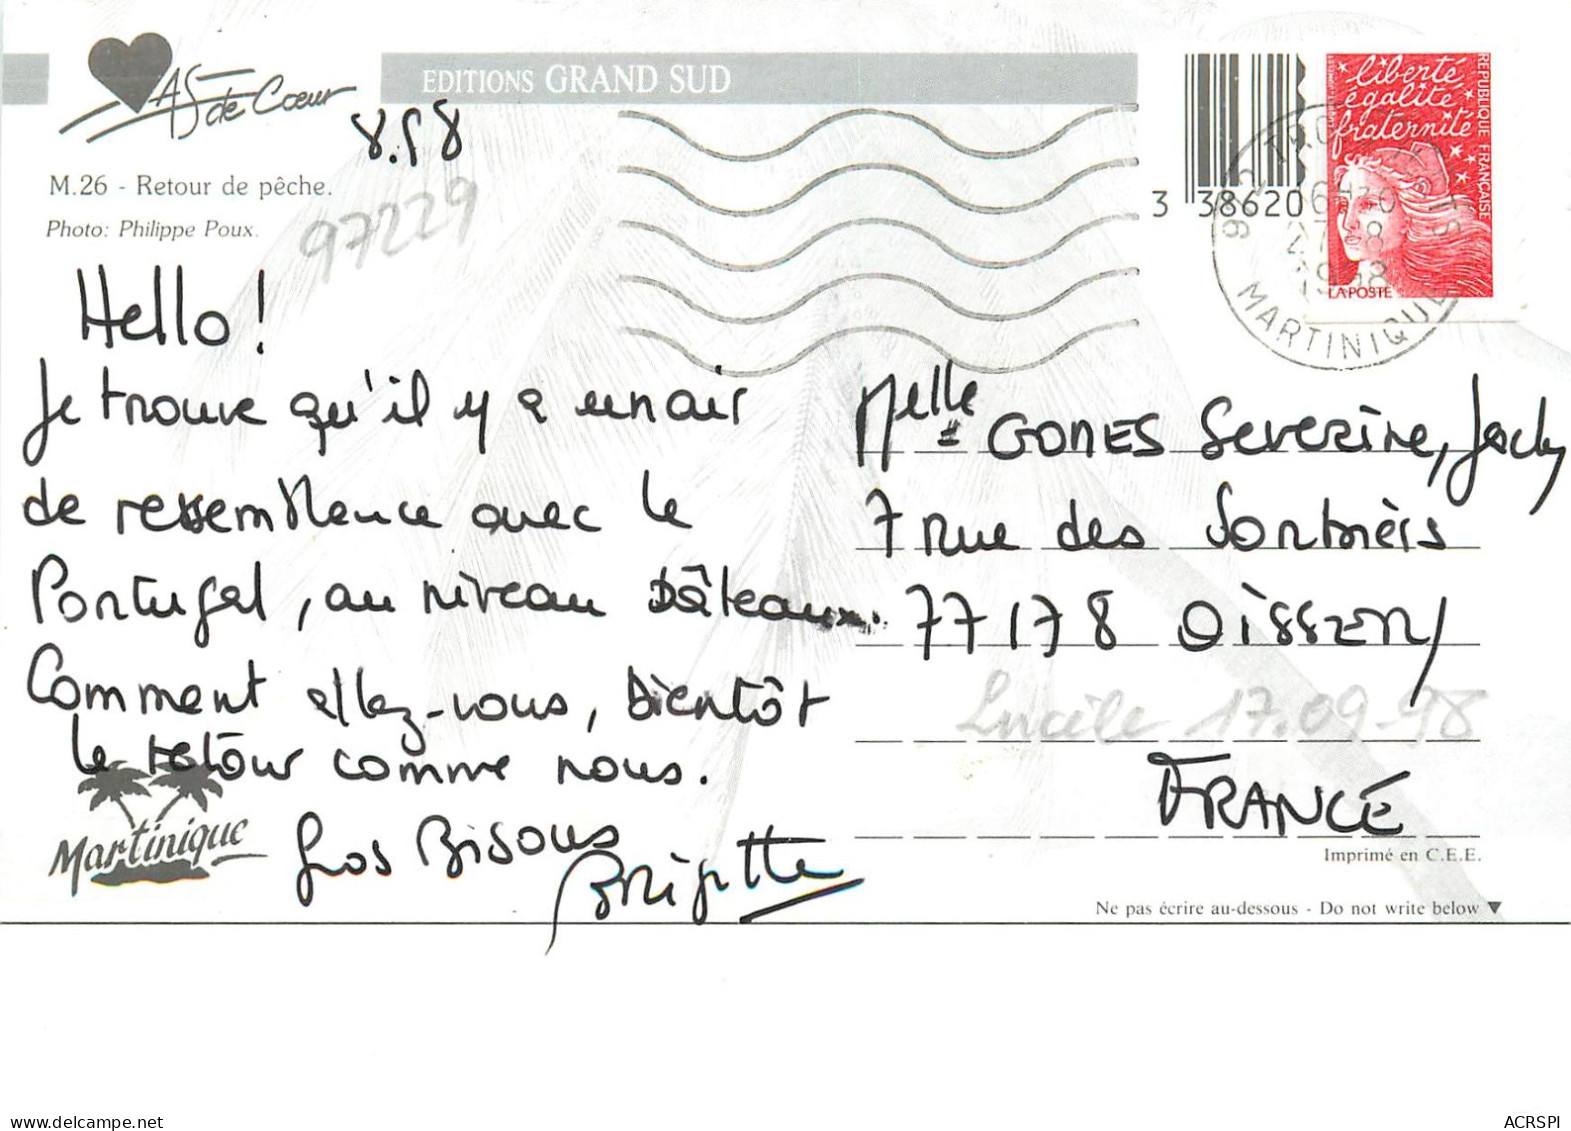 As de Cœur
EDITIONS GRAND SUD
8.98
M.26 - Retour de pêche.
Photo: Philippe Poux.
97229
3 38620
liberté
égalité
fraternité
REPUBLIQUE FRANÇAISE
LA POSTE
MARTINIQUE
Hello!
Je trouve qu'il y a un air
de ressemblance avec le
Portugal, au niveau bâteaux.
Comment allez-vous, bientôt
le retour comme nous.
Gros Bisous
Brigitte
Martinique
Melle GOMES Severine, Jacky
7 rue des
77178 OISSERY
Lucile 17.09-98
FRANCE
Imprimé en C.E.E.
Ne pas écrire au-dessous - Do not write below ▼
ACRSPI